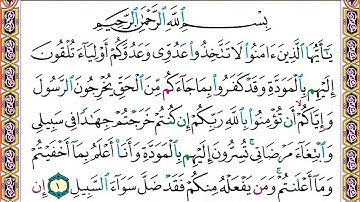 بِسْمِ ٱللَّهِ ٱلرَّحْمَٰنِ ٱلرَّحِيمِ
يَٰٓأَيُّهَا ٱلَّذِينَ ءَامَنُوا۟ لَا تَتَّخِذُوا۟ عَدُوِّى وَعَدُوَّكُمْ أَوْلِيَآءَ تُلْقُونَ
إِلَيْهِم بِٱلْمَوَدَّةِ وَقَدْ كَفَرُوا۟ بِمَا جَآءَكُم مِّنَ ٱلْحَقِّ يُخْرِجُونَ ٱلرَّسُولَ
وَإِيَّاكُمْ أَن تُؤْمِنُوا۟ بِٱللَّهِ رَبِّكُمْ إِن كُنتُمْ خَرَجْتُمْ جِهَٰدًا فِى سَبِيلِى
وَٱبْتِغَآءَ مَرْضَاتِى تُسِرُّونَ إِلَيْهِم بِٱلْمَوَدَّةِ وَأَنَا۠ أَعْلَمُ بِمَآ أَخْفَيْتُمْ
وَمَآ أَعْلَنتُمْ وَمَن يَفْعَلْهُ مِنكُمْ فَقَدْ ضَلَّ سَوَآءَ ٱلسَّبِيلِ ١ إِن